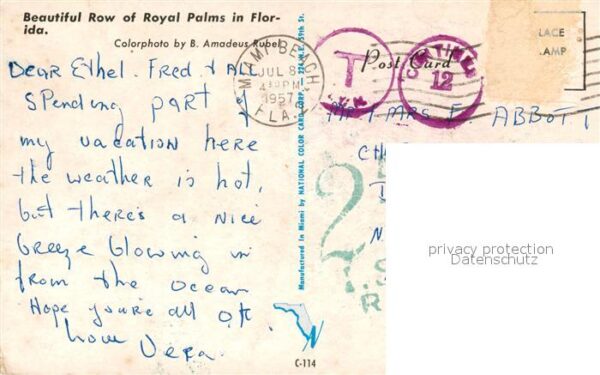 Beautiful Row of Royal Palms in Flor-
ida.
Colorphoto by B. Amadeus Rubel
Dear Ethel. Fred & All
Spending part of
my vacation here
the weather is hot,
but there's a nice
breeze blowing in
from the ocean
Hope you're all ok
Love Vera
MIAMI BEACH,
JUL 8
4 30 PM
1957
FLA.
T
12
Post Card
PLACE
STAMP
Mr & Mrs F ABBOT
Manufactured in Miami by NATIONAL COLOR CARD CORP.
C-114
privacy protection
Datenschutz